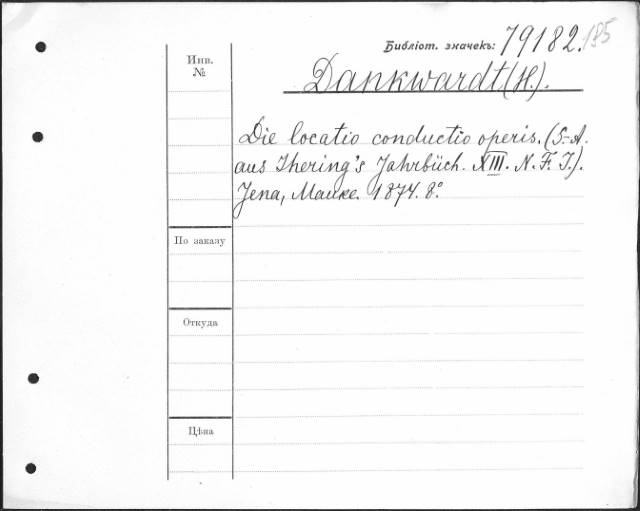 Библіот. значекъ: 79182.
185
Инв.
№
Dankwardt (H.).
Die locatio conductio operis. (S.-A.
aus Ihering's Jahrbüch. XIII. N. F. I.).
Jena, Mauke. 1874. 8°.
По заказу
Откуда
Цѣна